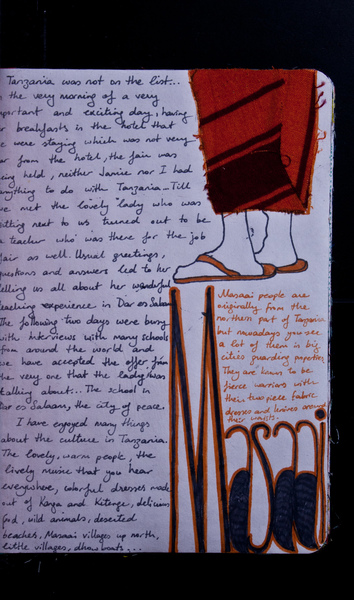 Tanzania was not on the list...
the very morning of a very
important and exciting day, having
breakfasts in the hotel that
e were staying which was not very
ar from the hotel, the fair was
eing held, neither Janice nor I had
anything to do with Tanzania... Till
we met the lovely lady who was
sitting next to us turned out to be
a teacher who was there for the job
fair as well. Usual greetings,
questions and answers led to her
telling us all about her wonderful
teaching experience in Dar es Salaam
The following two days were busy
with interviews with many schools
from around the world and
we have accepted the offer from
the very one that the lady was
talking about... The school in
Dar es Salaam, the city of peace.
I have enjoyed many things
about the culture in Tanzania.
The lovely, warm people, the
lively music that you hear
everywhere, colorful dresses made
out of Kanga and Kitenge, delicious
food, wild animals, deserted
beaches, Maasai villages up north,
little villages, dhow boats...
Maasai people are
originally from the
northern part of Tanzania
but nowadays you see
a lot of them in big
cities guarding properties.
They are known to be
fierce warriors with
their two piece fabric
dresses and knives around
their waists.
Maasai